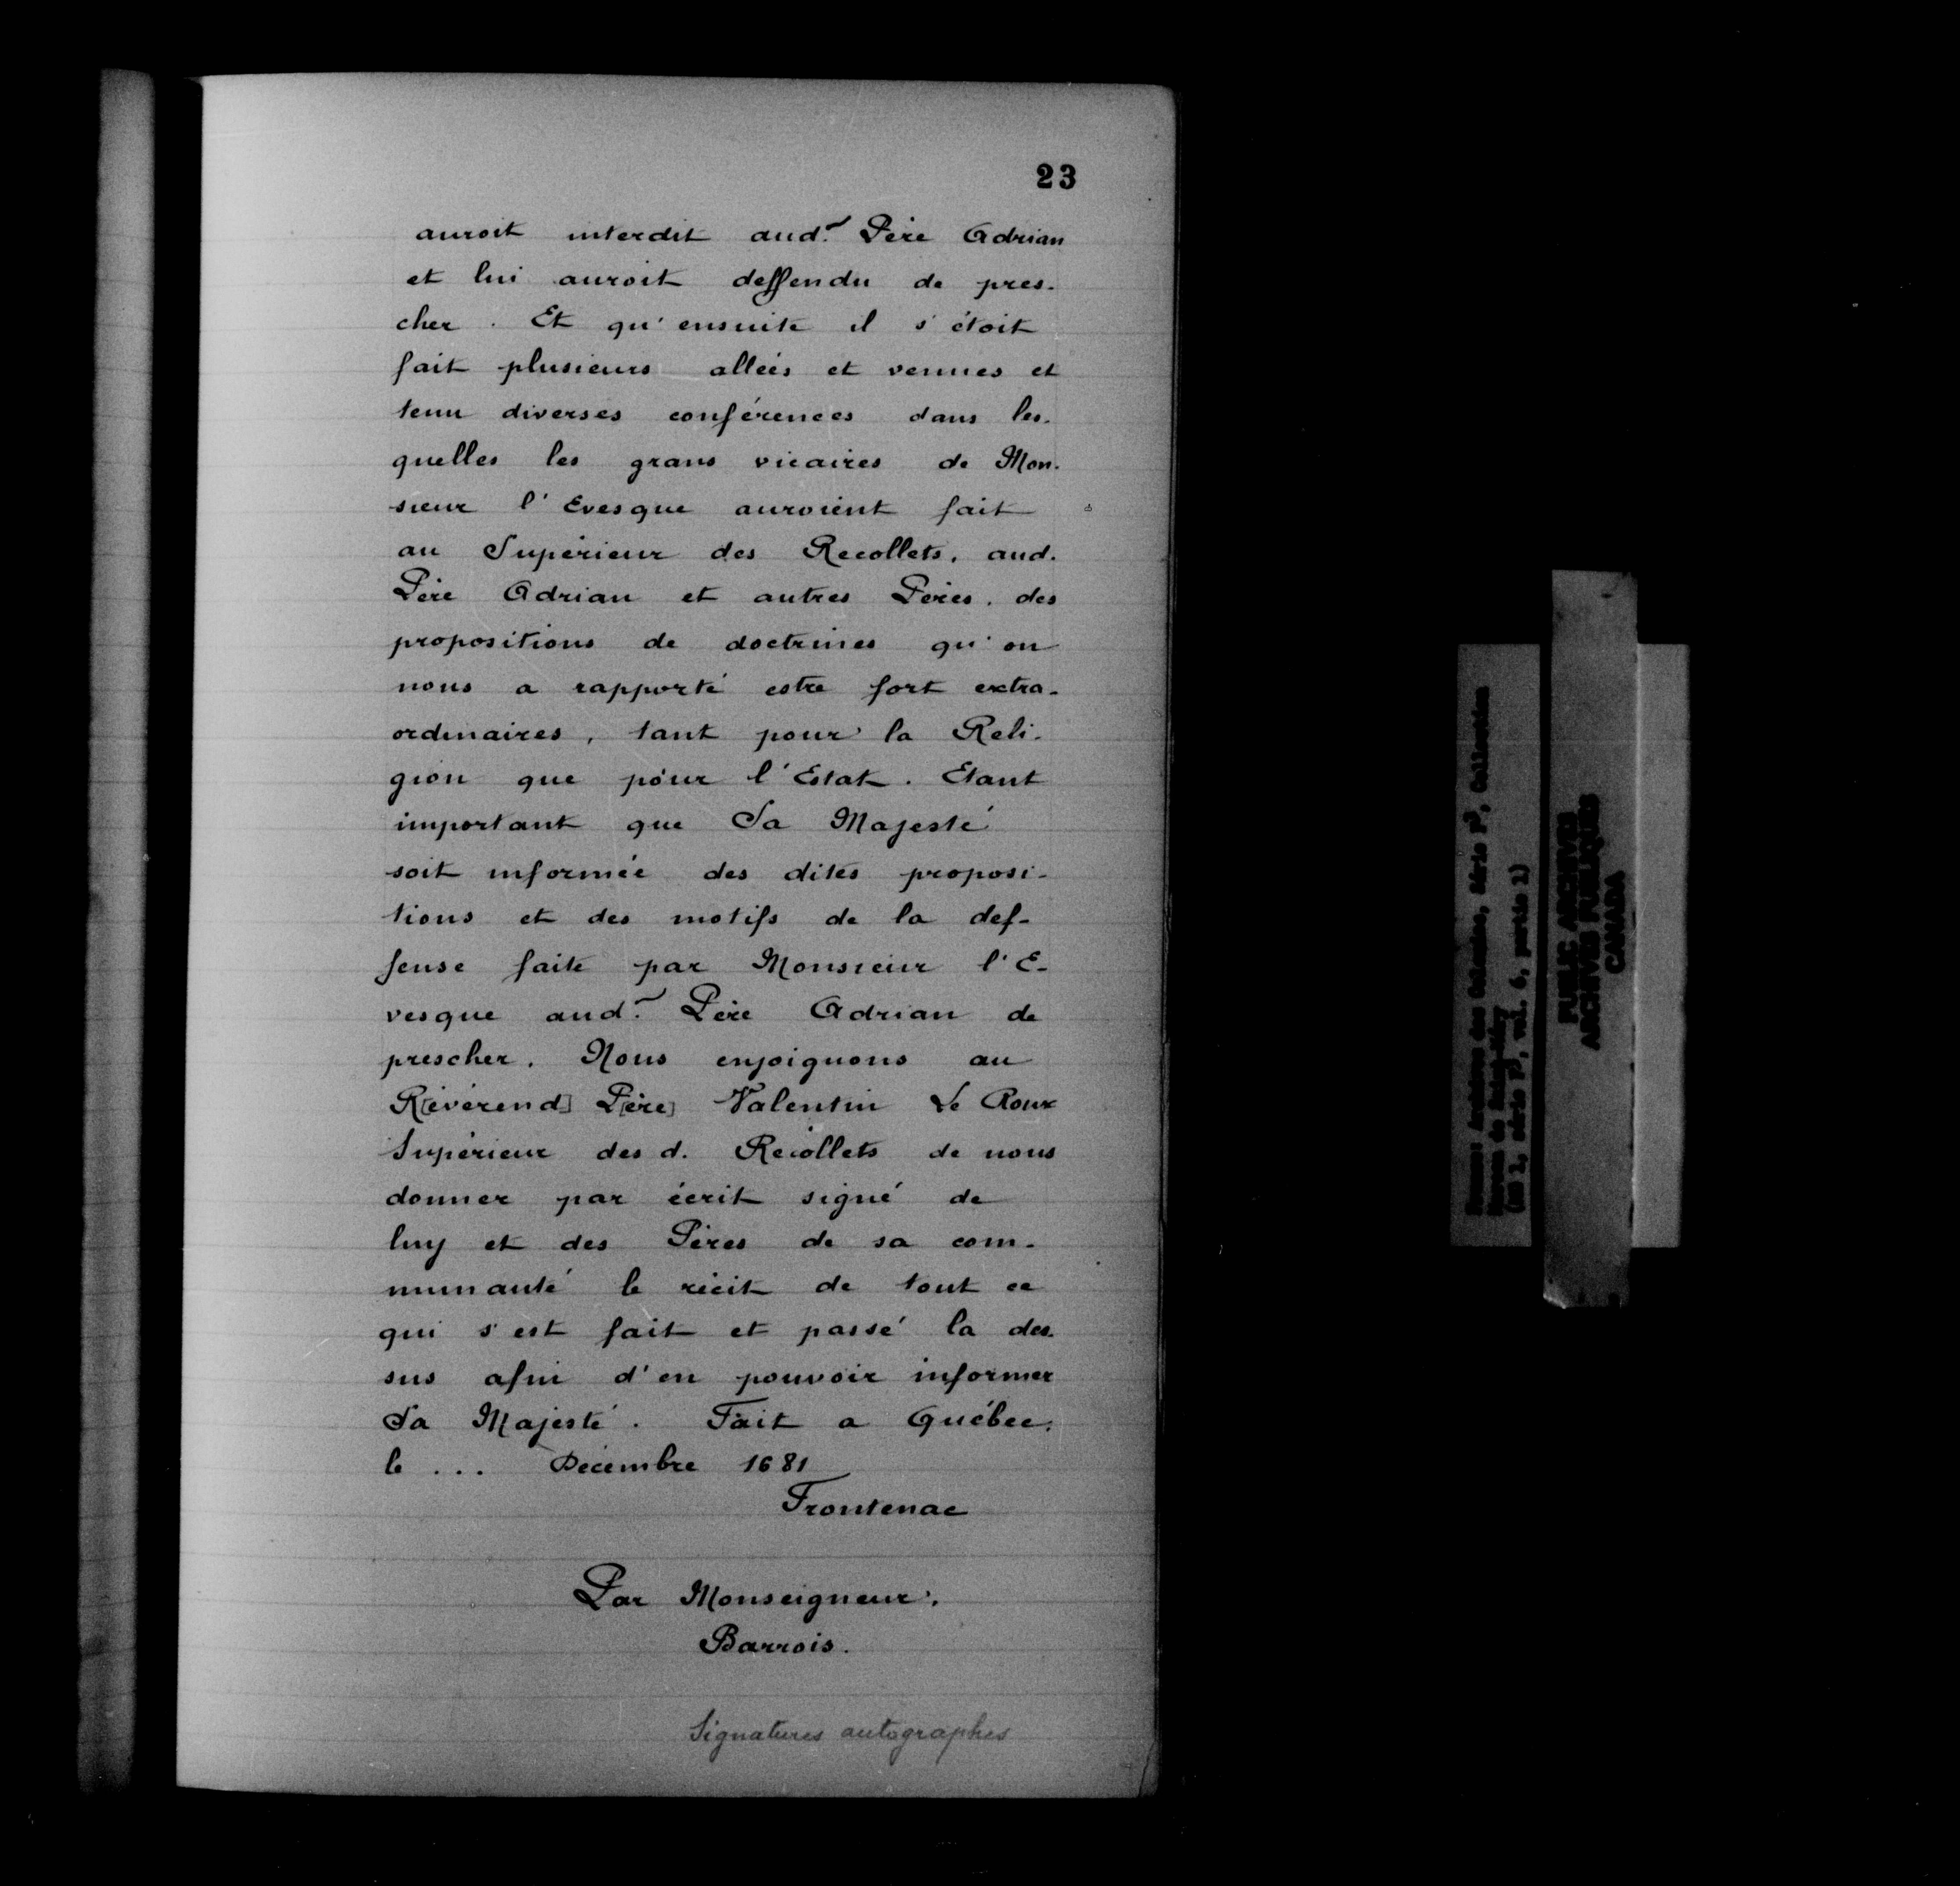 23
auroit interdit aud.~ Père Adrian
et lui auroit deffendu de pres-
cher. Et qu'ensuite il s'étoit
fait plusieurs allées et venues et
tenu diverses conférences dans les-
quelles les grans vicaires de Mon-
sieur l'Evesque auroient fait
au Supérieur des Recollets, aud.
Père Adrian et autres Pères, des
propositions de doctrines qu'on
nous a rapporté estre fort extra-
ordinaires, tant pour la Reli-
gion que pour l'Estat. Etant
important que Sa Majesté
soit informée des dites proposi-
tions et des motifs de la def-
fense faite par Monsieur l'E-
vesque aud.~ Père Adrian de
prescher. Nous enjoignons au
R[évérend] P[ère] Valentin Le Roux
Supérieur des d. Récollets de nous
donner par écrit signé de
luy et des Pères de sa com-
munauté le récit de tout ce
qui s'est fait et passé la des-
sus afin d'en pouvoir informer
Sa Majesté. Fait a Québec,
le ... Décembre 1681
Frontenac
Par Monseigneur,
Barrois.
Signatures autographes
France: Archives des Colonies, Série F3, Collection
Moreau de Saint-Méry
(MG 1, série F3, vol. 6, partie 2)
PUBLIC ARCHIVES
ARCHIVES PUBLIQUES
CANADA